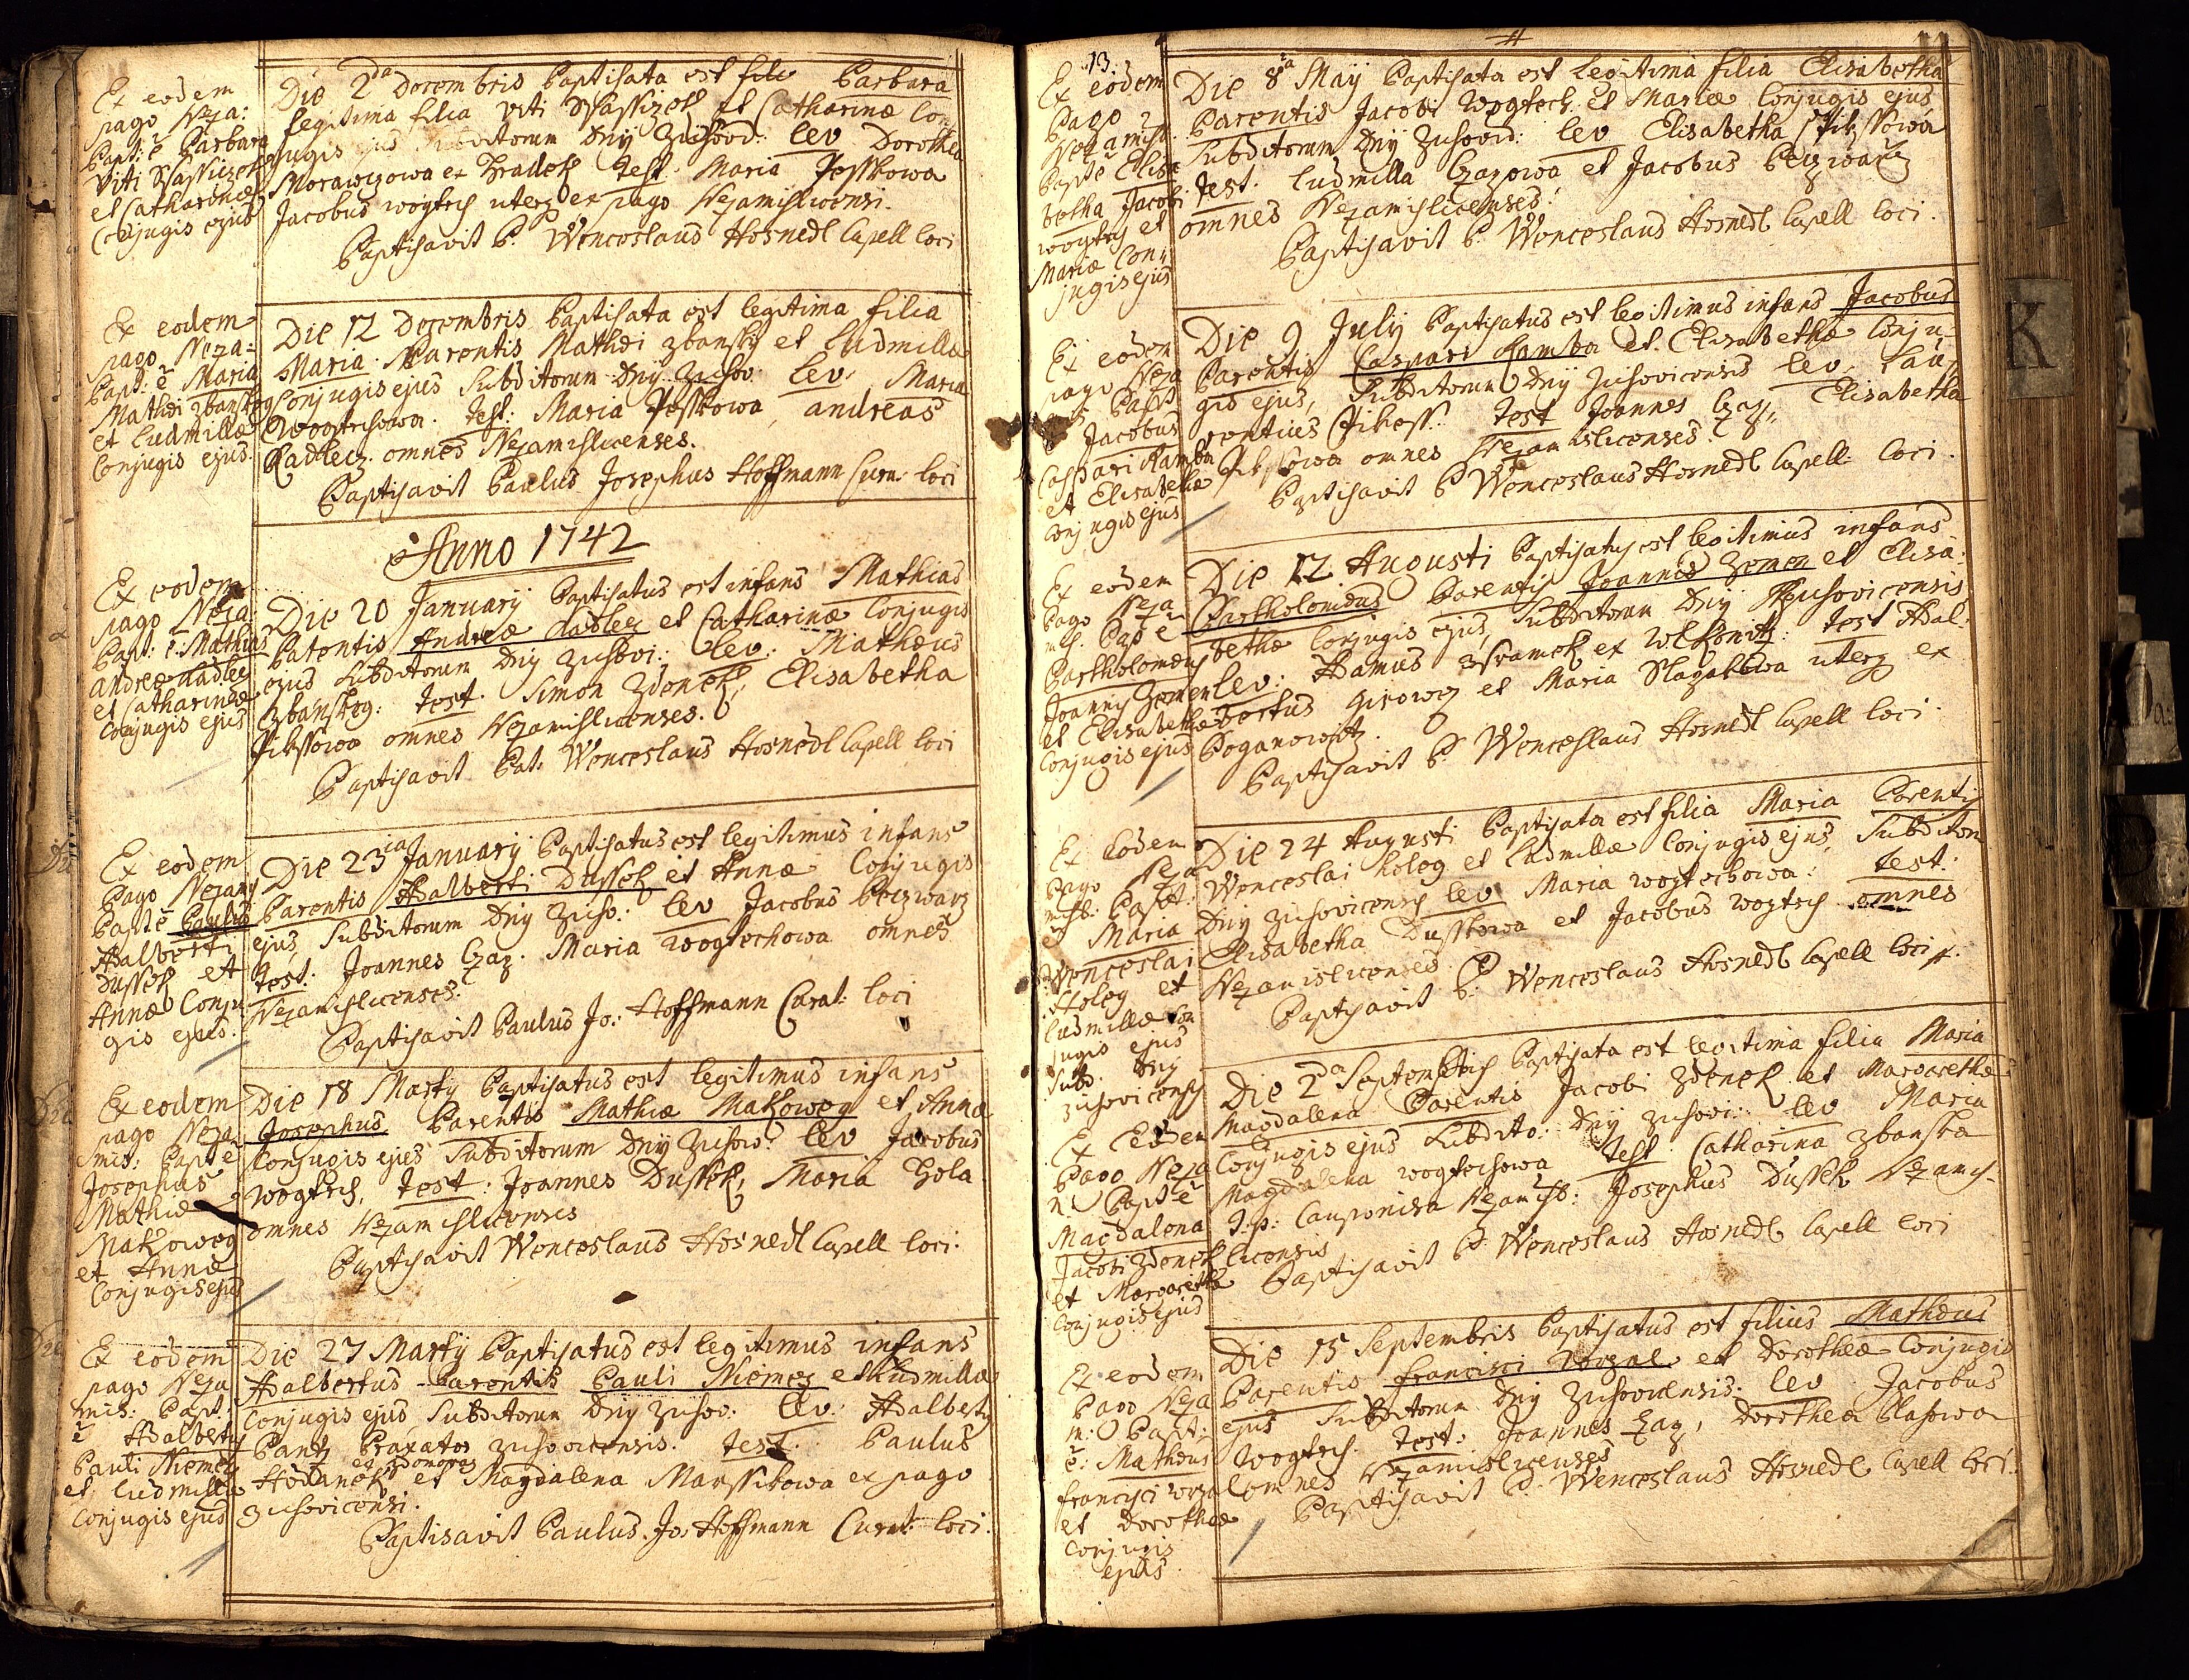 Ex eodem
pago Neza:
Bapt: ē Barbara
Viti
et Catharinæ
Conjugis ejus
Die 2da Decembris Baptisata est filia Barbara
legitima filia Viti et Catharinæ Con-
jugis ejus Subditorum Dnÿ Zichov: lev Dorothea
Morawczowa ex Hradek test. Maria Pesskowa
Jacobus wogtech uterq ex pago Nezamislicensi.
Baptisavit P. Wenceslaus Hosnedl Capell loci
Ex eodem
pago Neza=
Bapt: ē Maria
Mathæi zbansky
et Ludmillæ
Conjugis ejus.
Die 12 Decembris Baptisata est legitima filia
Maria Parentis Mathæi zbansky et Ludmillæ
Conjugis ejus Subditorum Dnÿ zichov. lev. Maria
Wogtechowa. test: Maria Pesskowa, andreas
Kadlecz. omnes Nezamislicenses.
Baptisavit Paulus Josephus Hoffmann Curat: loci
Anno 1742
Ex eodem
pago Neza:
Bapt: ē Mathias
Andreæ Kadlez
et Catharinæ
Conjugis ejus
Die 20 Januarÿ Baptisatus est infans Mathias
Parentis Andreæ Kadlez et Catharinæ Conjugis
ejus Subditorum Dnÿ zichovi: lev: Mathæus
Zbanskeg: test. Simon Zdenek, Elisabetha
Pikssowa omnes Nezamislicenses.
Baptisavit Pat. Wenceslaus Hosnedl Capell loci
Ex eodem
Pago Nezamÿ
Bapt ē Paulus
Adalberti
dussek et
Annæ Conju
gis ejus.
Die 23ia Januarÿ Baptisatus est legitimus infans
Parentis Adalberti Dussek et Annæ Conjugis
ejus, Subditorum Dnÿ Zicho.: lev Jacobus Beczwarz
test. Joannes Czaz. Maria wogtechowa omnes
Nezamislicenses.
Baptisavit Paulus Jo: Hoffmann Curat: loci
Ex eodem
pago Neza
mis: Bapt ē
Josephus
Mathiæ
Makoweg
et Annæ
Conjugis ejus
Die 18 Martÿ Baptisatus est legitimus infans
Josephus Parentis Mathiæ Makoweg et Annæ
Conjugis ejus Subditorum Dnÿ Zichow: lev Jacobus
wogtech, test: Joannes Dussek, Maria Hola
omnes Nezamislicenses
Baptisavit Wenceslaus Hosnedl Capell loci.
Ex eodem
pago Neza
mis: Bapt:
ē Adalbertus
Pauli Niemeg
et Ludmillæ
Conjugis ejus
Die 27 Martÿ Baptisatus est legitimus infans
Adalbertus Parentis Pauli Niemeg et Ludmillæ
Conjugis ejus Subditorum Dnÿ Zichov: lev: Adalbertg
Pantz Braxator zichovicensis. test. Paulus
Hodanek et Magdalena Marssikowa ex pago
zichovicensi.
Baptisavit Paulus Jo. Hoffmann Curat: loci.
13.
11
Ex eodem
Pago
Nezamisl.
Bapt ē Elisa
betha Jacobi
wogtech et
Mariæ Con,,
jugis ejus
Die 8a Maÿ Baptisata est Legitima filia Elisabetha
Parentis Jacobi Wogtech et Mariæ Conjugis ejus
Subditorum Dnÿ Zichovi: lev Elisabetha Pikssowa
test. Ludmilla Czazowa et Jacobus Beczwarz
omnes Nezamislicenses.
Baptisavit P. Wenceslaus Hosnedl Capell loci.
Ex eodem
pago Neza
Bapt
Jacobus
Caspari Kamba
et Elisabethæ
Conjugis ejus
Die 9 Julÿ Baptisatus est legitimus infans Jacobus
Parentis Caspari Kamba et Elisabethæ Conju-
gis ejus, Subditorum Dnÿ zichovicensis lev. Lau
rentius Pikess: test Joannes Czaz, Elisabetha
Pikssowa omnes Nezamislicenses.
Baptisavit P Wenceslaus Hosnedl Capell: loci.
Ex eodem
Pago Neza
misl. Bap ē
Bartholomæus
Joannis Zemen
et Elisabethæ
Conjugis ejus
Die 12 Augusti Baptisatus est legitimus infans
Bartholomæus Parentis Joannis Zemen et Elisa-
bethæ Conjugis ejus, Subditorum Dnÿ Zichovicensis
lev: Adamus ex Wlkonitz: test Adal-
bertus Girowez et Maria Slagalowa uterq ex
Boganowitz.
Baptisavit P. Wenceslaus Hosnedl Capell loci.
Ex Eodem
Pago Neza
misl: Bapt:
ē Maria
Wenceslai
Holeg et
Ludmillæ Con
jugis ejus
Subd. Dnÿ
zichovicensis
Die 24 Augusti Baptisata est filia Maria Parentis
Wenceslai holeg et Ludmillæ Conjugis ejus, Subditoru
Dnÿ zichovicensis lev Maria wogtechowa: test:
Elisabetha Dusskowa et Jacobus wogtech omnes
Nezamislicenses.
Baptisavit P. Wenceslaus Hosnedl Capell loci.
Ex Eodem
Pago Neza
Bapt ē
Magdalena
Jacobi Zdenek
et Margarethæ
Conjugis ejus
Die 2da Septembris Baptisata est legitima filia Maria
Magdalena Parentis Jacobi Zdenek et Margarethæ
Conjugis ejus Subdito: Dnÿ zichovi: lev Maria
Magdalena wogtechowa test Catharina zbanska
Cauponissa Nezamisl: Josephus Dussek Nezamis-
licensis
Baptisavit P. Wenceslaus Hosnedl Capell loci
Ex eodem
Pago Neza
m: Bapt:
ē: Mathæus
Francisci worzal
et Dorotheæ
Conjugis
ejus.
Die 15 Septembris Baptisatus est filius Mathæus
Parentis francisci Worzal et Dorotheæ Conjugis
ejus Subditorum Dnÿ Zichovicensis. lev Jacobus
Wogtech. test: Joannes Czaz, Dorothea Blahowa
omnes Nezamislicenses
Baptisavit P. Wenceslaus Hosnedl Capell loci.